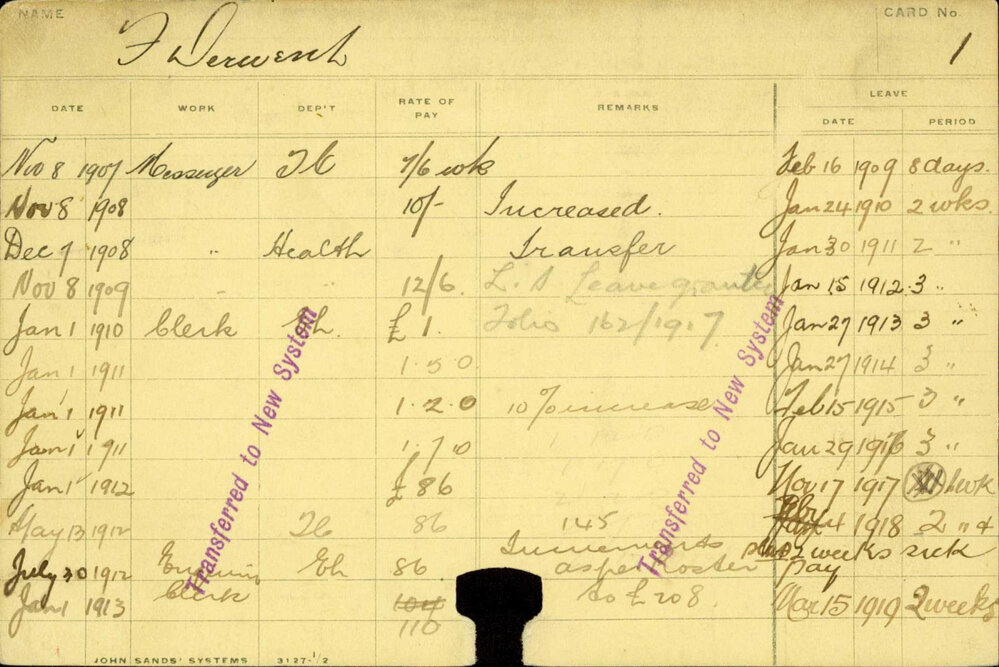 NAME
F Derwent
CARD No.
1
DATE WORK DEP'T RATE OF PAY REMARKS LEAVE
DATE PERIOD
Nov 8 1907 Messenger 7/6 wk Feb 16 1909 8 days.
Nov 8 1908 10/- Increased. Jan 24 1910 2 wks.
Dec 7 1908 " Health Transfer Jan 30 1911 2 "
Nov 8 1909 " 12/6. L.S Leave granted Jan 15 1912 3 "
Jan 1 1910 Clerk £1. Folio 162/1917 Jan 27 1913 3 "
Jan 1 1911 1.5.0 Jan 27 1914 3 "
Jan 1 1911 1.2.0 10% increase Feb 15 1915 3 "
Jan 1 1911 1.7.0 Jan 29 1916 3 "
Jan 1 1912 £86 Nov 17 1917 1 wk
May 13 1912 86 145 Feby 4 1918 2 " &
July 30 1912 Enquiry Clerk 86 Increments as per Roster plus 2 weeks sick pay
Jan 1 1913 104 110 to £208. Mar 15 1919 2 weeks
Transferred to New System
Transferred to New System
JOHN SANDS' SYSTEMS 3127-1/2